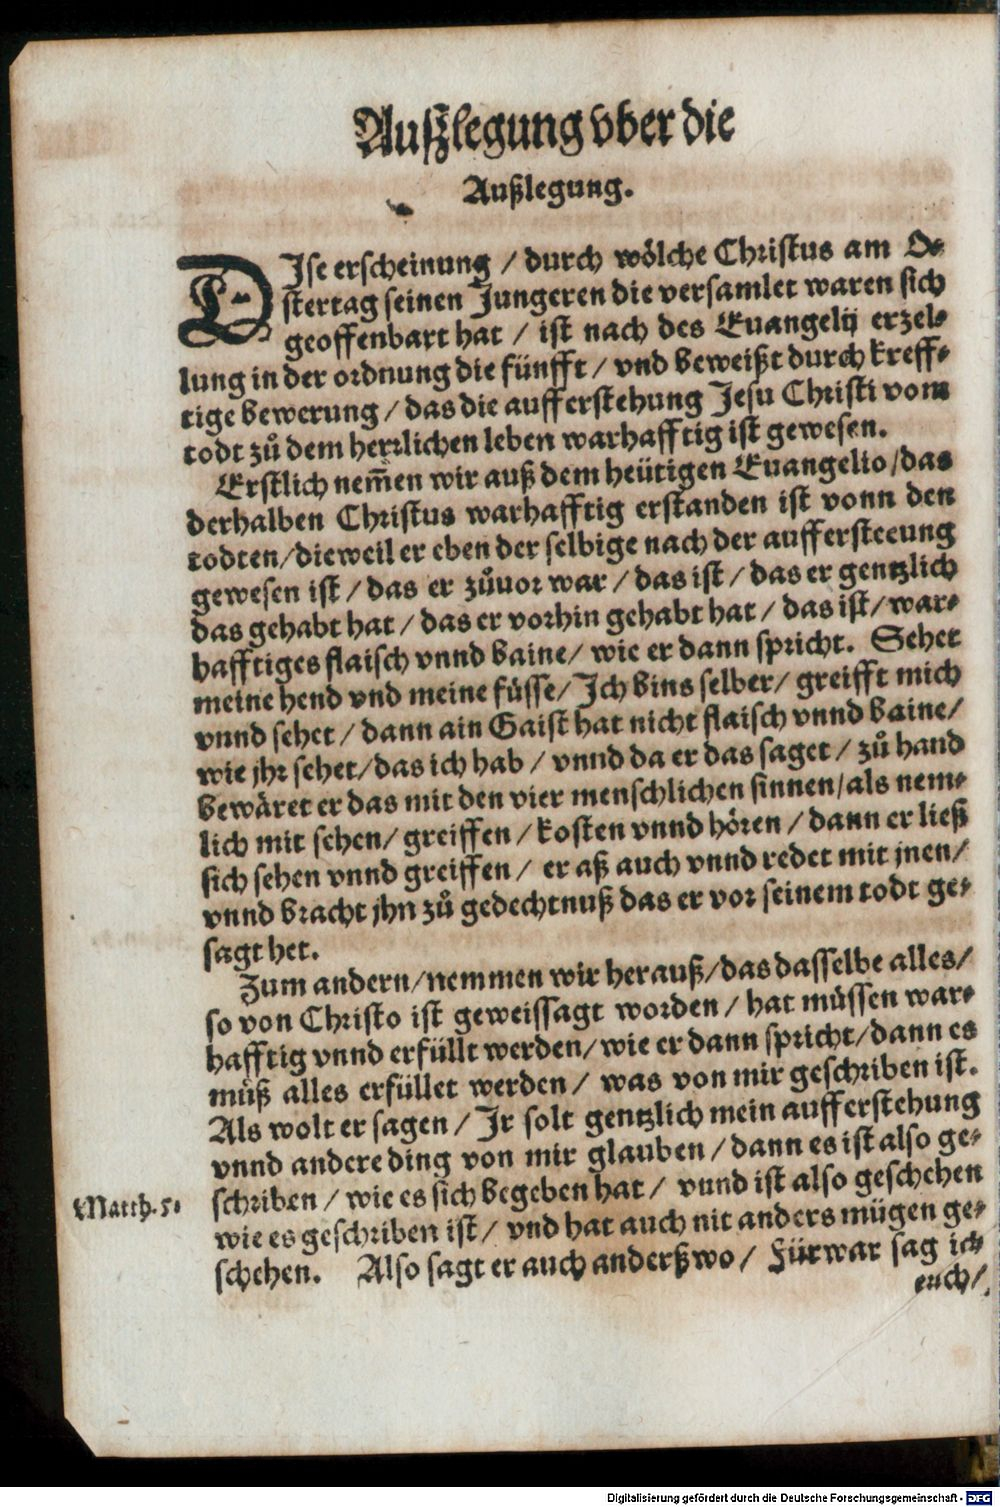 Außlegung vber die
Außlegung.
DIse erscheinung / durch wölche Christus am O-
stertag seinen Jungeren die versamlet waren sich
geoffenbart hat / ist nach des Euangelij erzel-
lung in der ordnung die fünfft / vnd beweißt durch kreff-
tige bewerung / das die aufferstehung Jesu Christi vom
todt zů dem herrlichen leben warhafftig ist gewesen.
Erstlich nem̃en wir auß dem heütigen Euangelio / das
derhalben Christus warhafftig erstanden ist vonn den
todten / dieweil er eben der selbige nach der auffersteeung
gewesen ist / das er zůuor war / das ist / das er gentzlich
das gehabt hat / das er vorhin gehabt hat / das ist / war-
hafftiges flaisch vnnd baine / wie er dann spricht. Sehet
meine hend vnd meine füsse / Ich bins selber / greifft mich
vnnd sehet / dann ain Gaist hat nicht flaisch vnnd baine /
wie jhr sehet / das ich hab / vnnd da er das saget / zů hand
bewäret er das mit den vier menschlichen sinnen / als nem-
lich mit sehen / greiffen / kosten vnnd hören / dann er ließ
sich sehen vnnd greiffen / er aß auch vnnd redet mit jnen /
vnnd bracht jhn zů gedechtnuß das er vor seinem todt ge-
sagt het.
Zum andern / nemmen wir herauß / das dasselbe alles /
so von Christo ist geweissagt worden / hat müssen war-
hafftig vnnd erfüllt werden / wie er dann spricht / dann es
můß alles erfüllet werden / was von mir geschriben ist.
Als wolt er sagen / Ir solt gentzlich mein aufferstehung
vnnd andere ding von mir glauben / dann es ist also ge-
schriben / wie es sich begeben hat / vnnd ist also geschehen
Matth. 5.
wie es geschriben ist / vnd hat auch nit anders mügen ge-
schehen. Also sagt er auch anderßwo / Fürwar sag ich
euch /
Digitalisierung gefördert durch die Deutsche Forschungsgemeinschaft - DFG